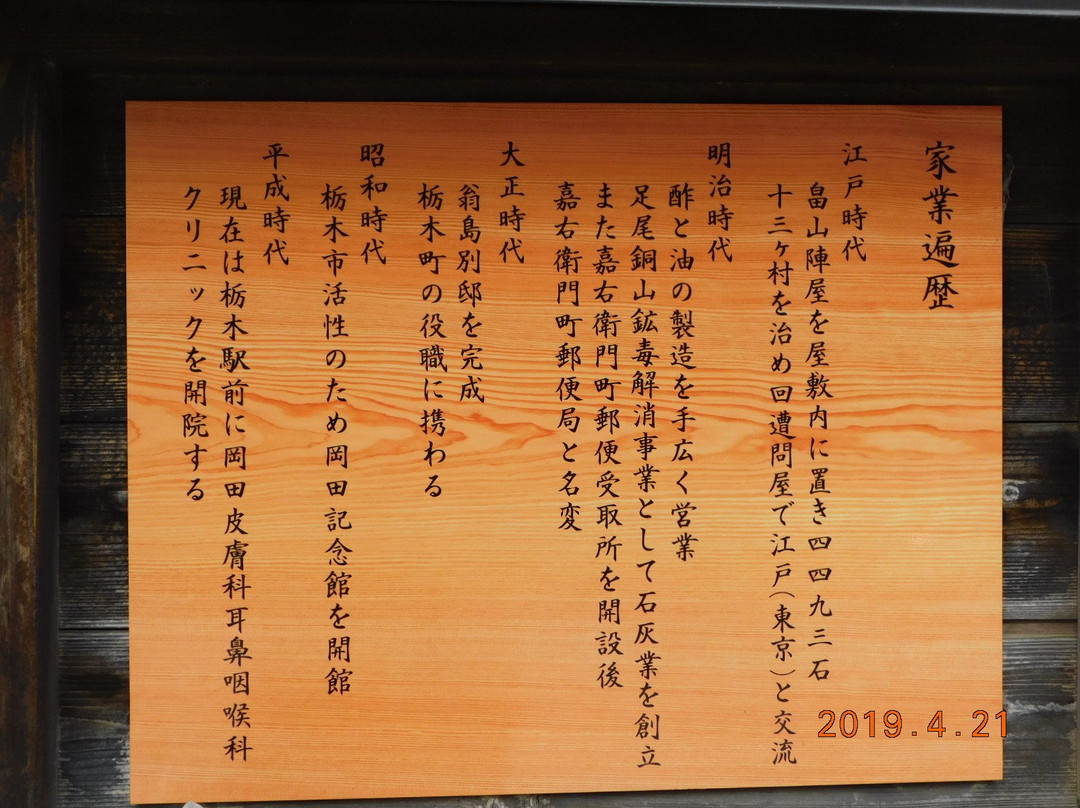 家業遍歴
江戸時代
畠山陣屋を屋敷内に置き四四九三石
十三ヶ村を治め回遭問屋で江戸(東京)と交流
明治時代
酢と油の製造を手広く営業
足尾銅山鉱毒解消事業として石灰業を創立
また嘉右衛門町郵便受取所を開設後
嘉右衛門町郵便局と名変
大正時代
翁島別邸を完成
栃木町の役職に携わる
昭和時代
栃木市活性のため岡田記念館を開館
平成時代
現在は栃木駅前に岡田皮膚科耳鼻咽喉科
クリニックを開院する
2019.4.21